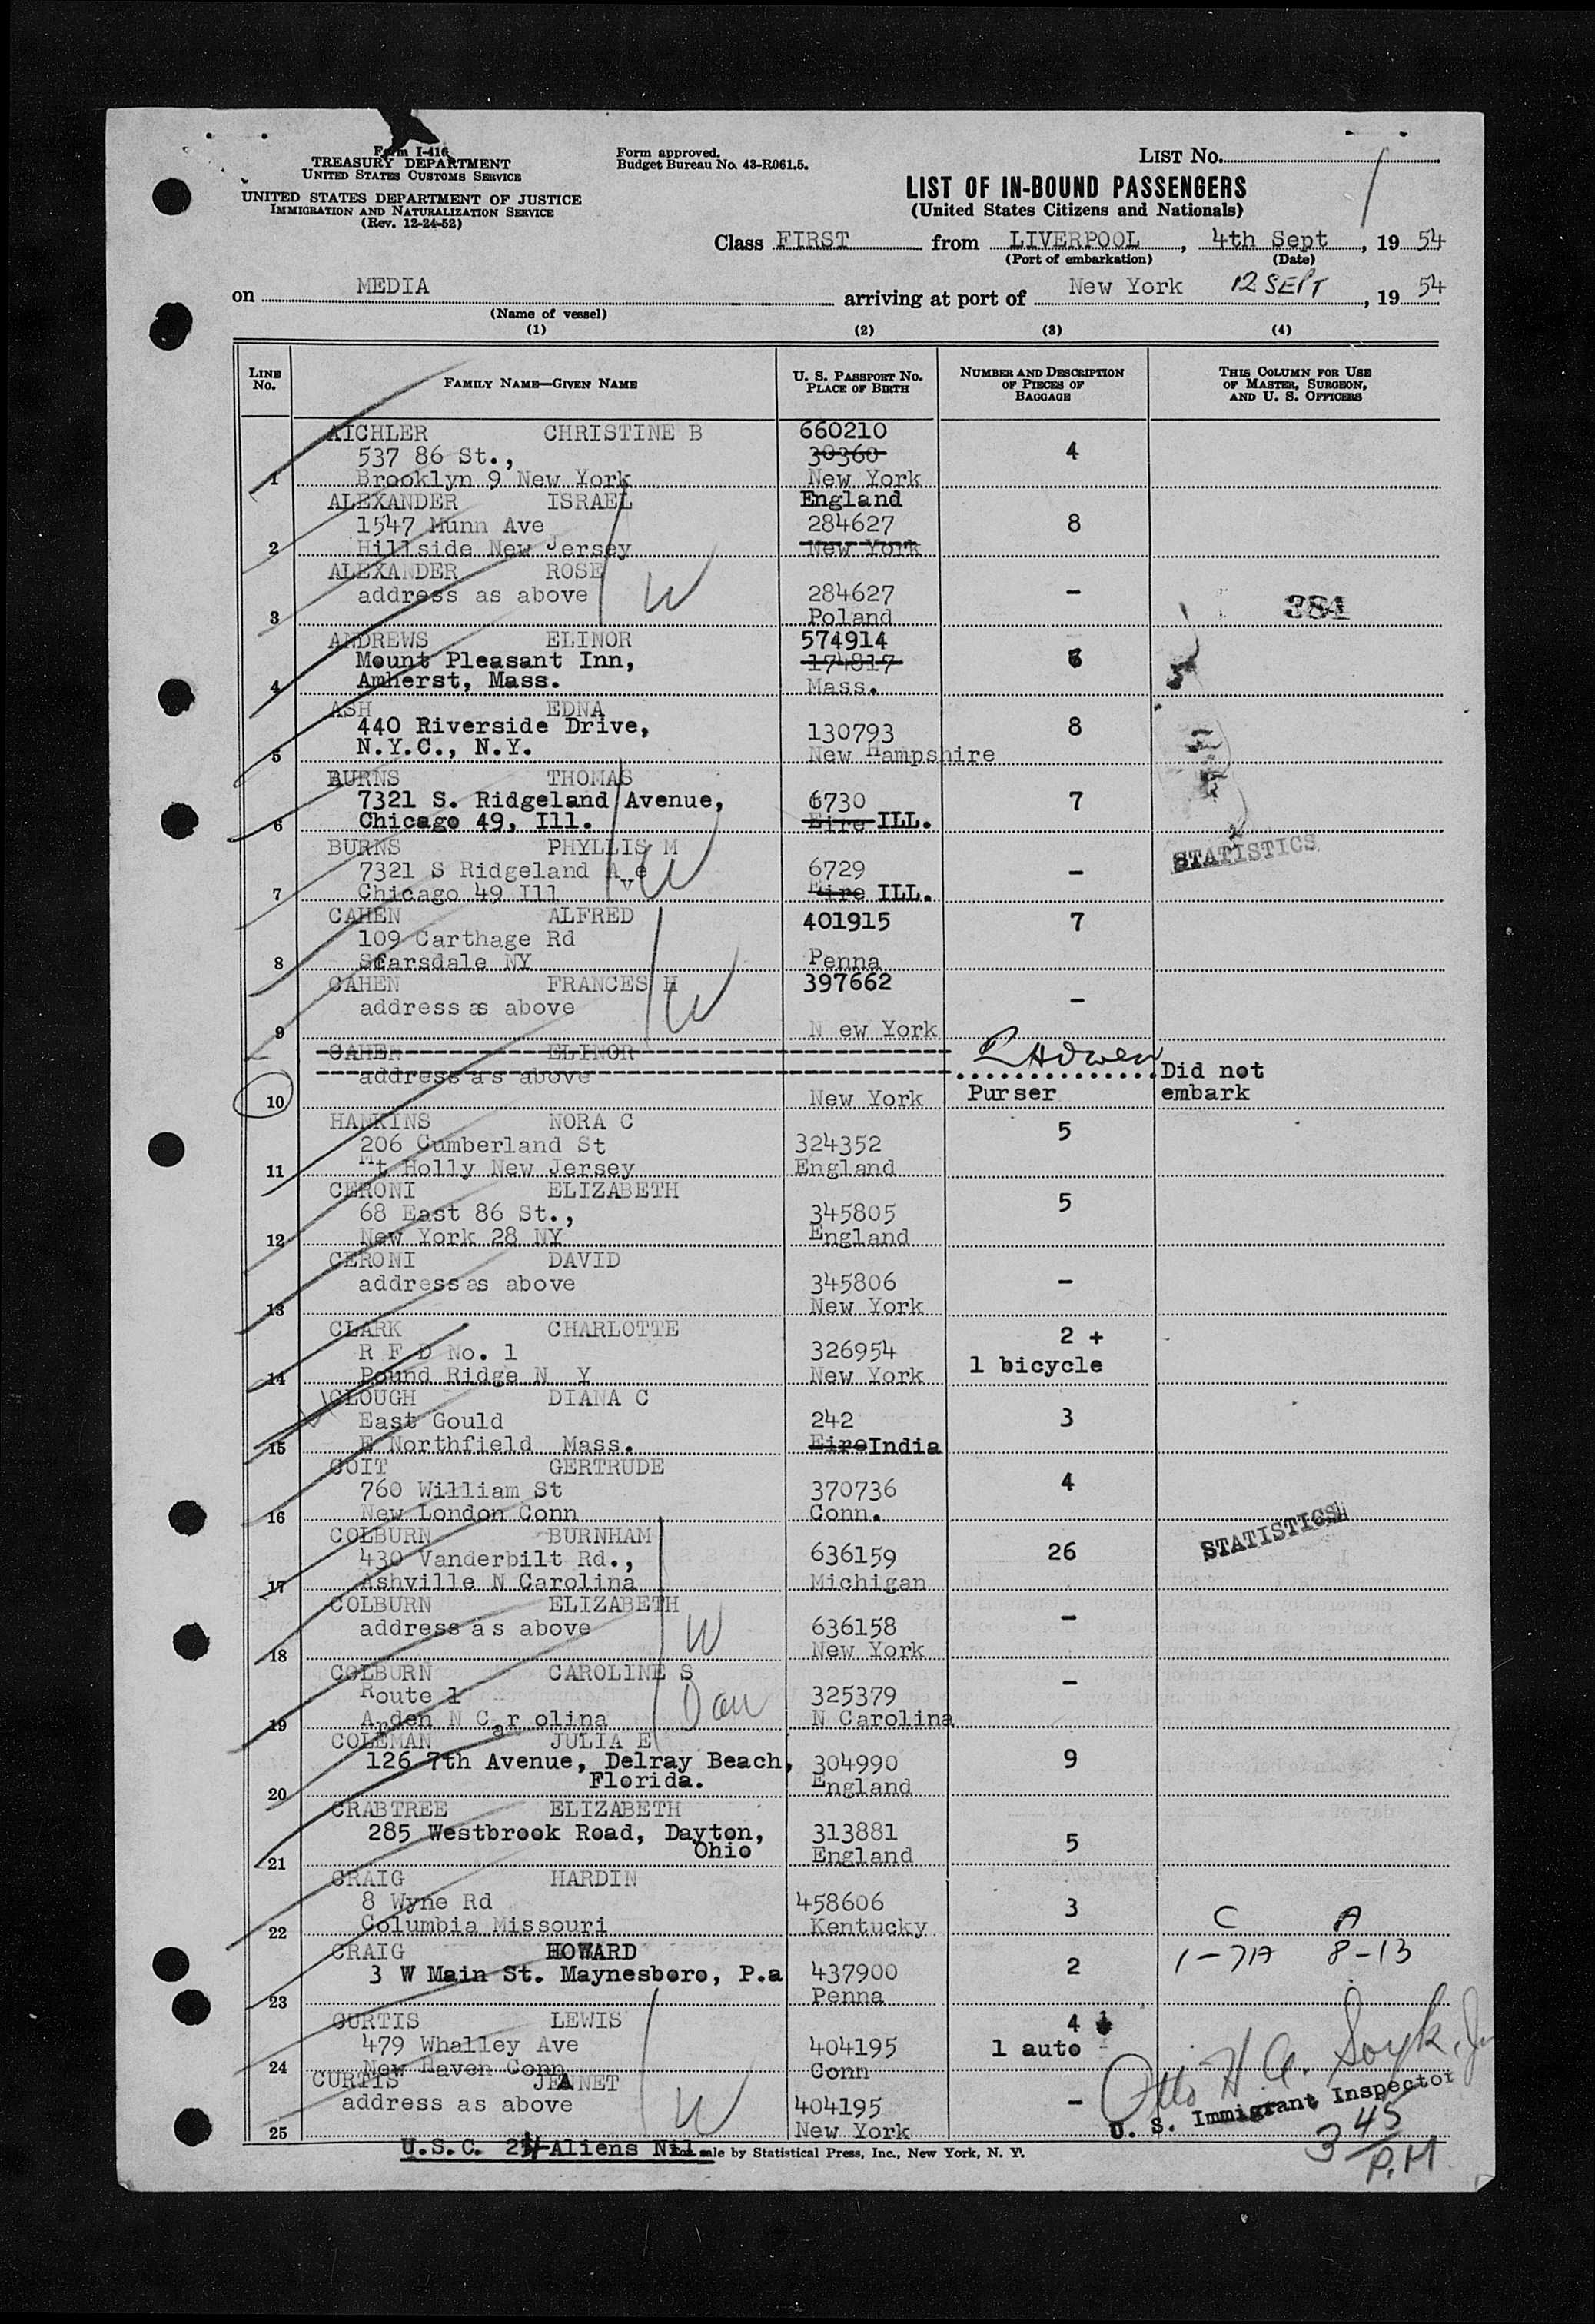 Form I-416
TREASURY DEPARTMENT
UNITED STATES CUSTOMS SERVICE
UNITED STATES DEPARTMENT OF JUSTICE
IMMIGRATION AND NATURALIZATION SERVICE
(Rev. 12-24-52)
Form approved.
Budget Bureau No. 43-R061.5.
LIST NO.
LIST OF IN-BOUND PASSENGERS
(United States Citizens and Nationals)
Class FIRST from LIVERPOOL, 4th Sept, 19 54
(Port of embarkation) (Date)
on MEDIA arriving at port of New York 12 SEPT, 19 54
(Name of vessel)
(1) (2) (3) (4)
LINE NO.
FAMILY NAME—GIVEN NAME
U. S. PASSPORT NO.
PLACE OF BIRTH
NUMBER AND DESCRIPTION
OF PIECES OF
BAGGAGE
THIS COLUMN FOR USE
OF MASTER, SURGEON,
AND U. S. OFFICERS
AICHLER CHRISTINE B 660210
537 86 St., 30360 4
1 Brooklyn 9 New York New York
ALEXANDER ISRAEL England
1547 Munn Ave 284627 8
2 Hillside New Jersey New York
ALEXANDER ROSE
address as above W 284627 -
3 Poland 384
ANDREWS ELINOR 574914
Mount Pleasant Inn, 174817
4 Amherst, Mass. Mass.
ASH EDNA
440 Riverside Drive, 130793 8
5 N.Y.C., N.Y. New Hampshire
BURNS THOMAS
7321 S. Ridgeland Avenue, 6730 7
6 Chicago 49, Ill. Eire ILL.
BURNS PHYLLIS M STATISTICS
7321 S Ridgeland Ave W 6729 -
7 Chicago 49 Ill Eire ILL.
CAHEN ALFRED 401915 7
109 Carthage Rd
8 Scarsdale NY Penna
CAHEN FRANCES H 397662
address as above W -
9 New York
CAHEN ELINOR
address as above Did not
10 New York Purser embark
HANKINS NORA C
206 Cumberland St 324352 5
11 Mt Holly New Jersey England
CERONI ELIZABETH
68 East 86 St., 345805 5
12 New York 28 NY England
CERONI DAVID
address as above 345806 -
13 New York
CLARK CHARLOTTE 2 +
R F D No. 1 326954 1 bicycle
14 Pound Ridge N Y New York
CLOUGH DIANA C
East Gould 242 3
15 E Northfield Mass. Eire India
COIT GERTRUDE
760 William St 370736 4
16 New London Conn Conn.
COLBURN BURNHAM STATISTICS
430 Vanderbilt Rd., 636159 26
17 Ashville N Carolina Michigan
COLBURN ELIZABETH
address as above W 636158 -
18 New York
COLBURN CAROLINE S
Route 1 Dau 325379 -
19 Arden N Carolina N Carolina
COLEMAN JULIA E
126 7th Avenue, Delray Beach, 304990 9
20 Florida. England
CRABTREE ELIZABETH
285 Westbrook Road, Dayton, 313881 5
21 Ohio England
CRAIG HARDIN
8 Wyne Rd 458606 3
22 Columbia Missouri Kentucky C A
CRAIG HOWARD 1-7A 8-13
3 W Main St. Maynesboro, P.a 437900 2
23 Penna
CURTIS LEWIS 4
479 Whalley Ave 404195 1 auto
24 New Haven Conn Conn Otto H A. Soyk, Jr
CURTIS JEANNET
address as above W 404195 - U. S. Immigrant Inspector
25 New York 3 45 P.M
U.S.C. 24 Aliens Nil sale by Statistical Press, Inc., New York, N. Y.